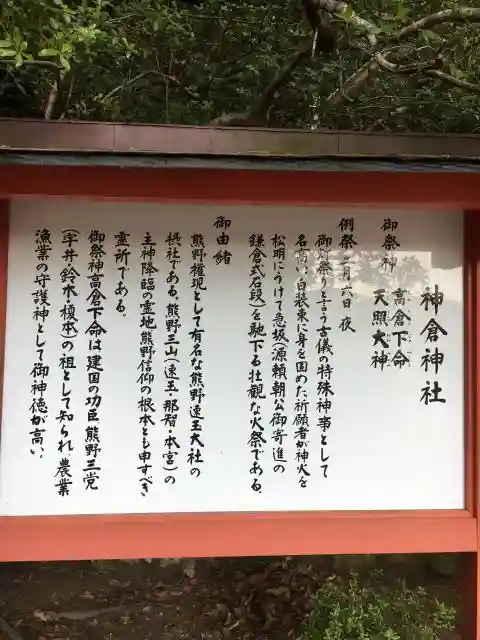 神倉神社
御祭神
高倉下命
天照大神
例祭 二月六日 夜
御灯祭りと言う古儀の特殊神事として
名高い。白装束に身を固めた祈願者が神火を
松明にうけて急坂(源頼朝公御寄進の
鎌倉式石段)を馳下る壮観な火祭である。
御由緒
熊野権現として有名な熊野速玉大社の
摂社である。熊野三山(速玉・那智・本宮)の
主神降臨の霊地熊野信仰の根本とも申すべき
霊所である。
御祭神高倉下命は建国の功臣熊野三党
(宇井・鈴木・榎本)の祖として知られ、農業
漁業の守護神として御神徳が高い。